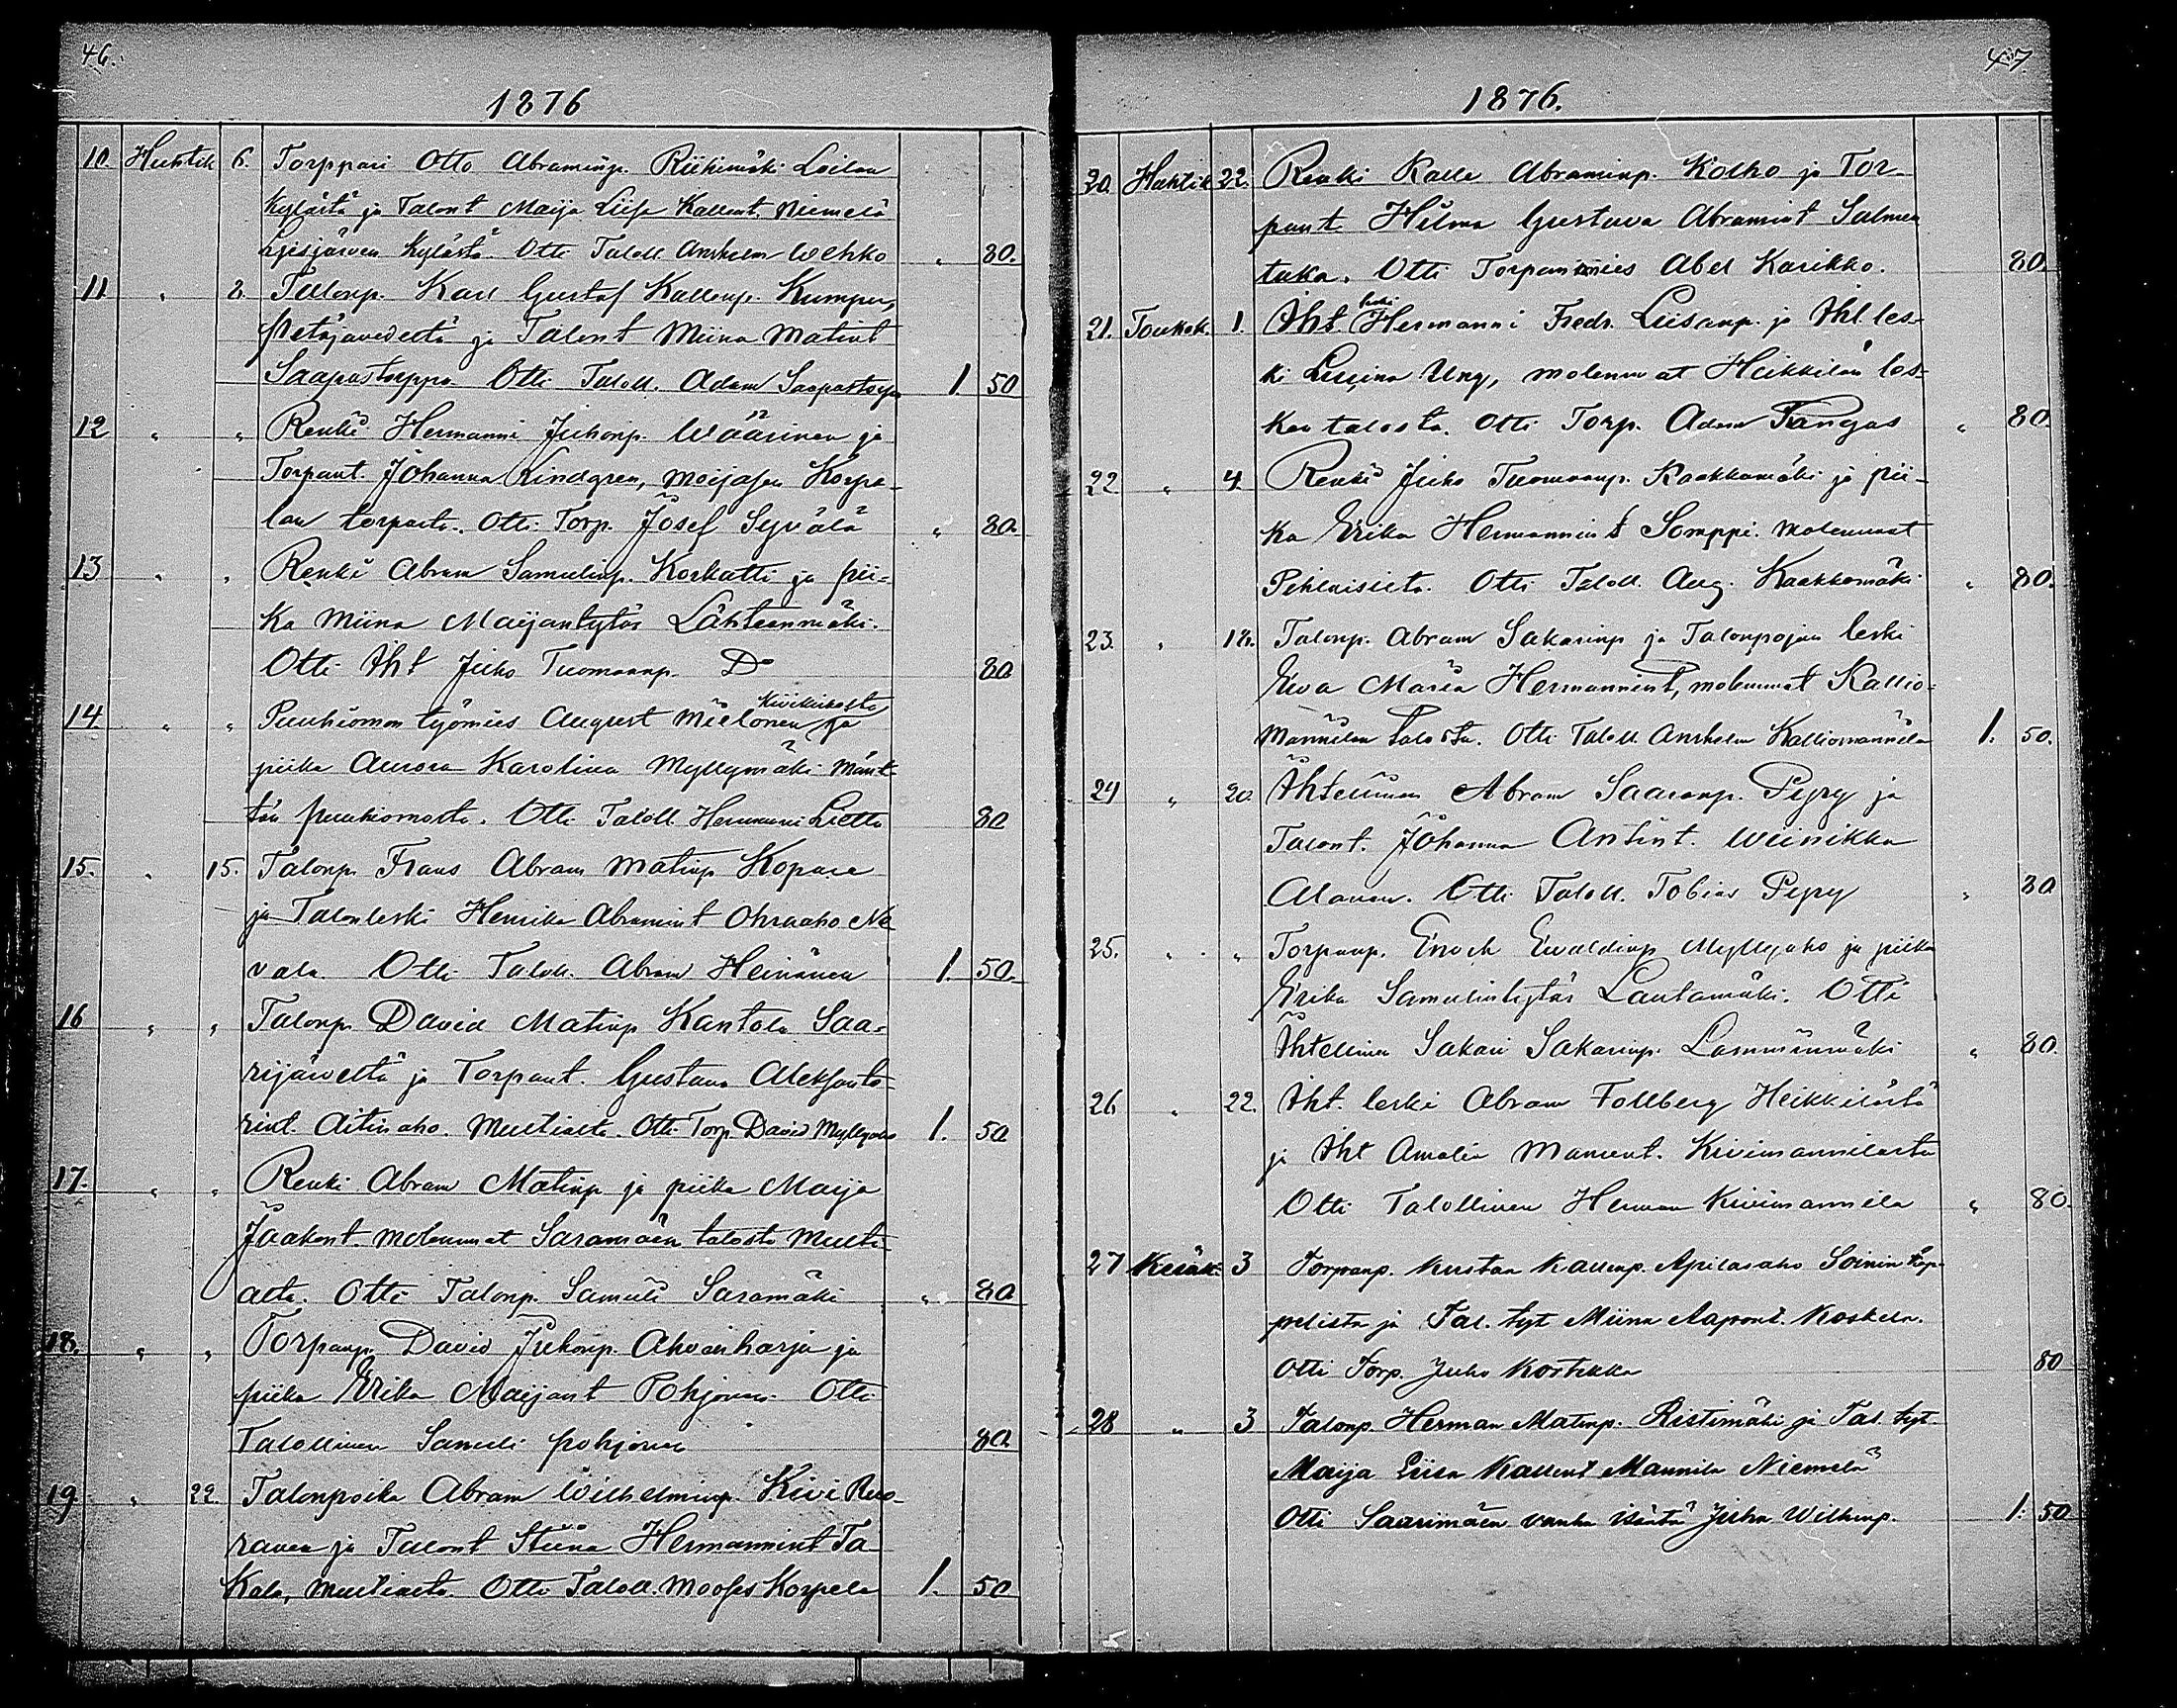 46.
1876
10. Huhtik 6. Torppari Otto Abraminp. Riihimäki Loilan
kylästä ja Talont Maija Liisa Kallent. Niemelä
kylästä. Otti Taloll. Anshelm Wehko " 80.
11 " 8. Talonp. Karl Gustaf Kallenp. Kumpu,
Petäjävedeltä ja Talont Miina Matint
Saapastoppa Otti Taloll. Adam 1. 50
12 " " Renki Hermanni Juhonp. Wäärinen ja
Torpant. Johanna Lindgren, Korpe-
lan torpasta. Otti Torp. Josef Syvälä " 80.
13 " " Renki Abram Samulinp. Korkatti ja pii-
ka Miina Maijantytär Lähteenmäki.
Otti Iht Juho Tuomaanp. Do 80
14 " " Puuhiomon työmies August Mielonen Kivikirkosta ja
piika Aurora Karolina Myllymäki Mänt-
tän puuhiomosta. Otti Taloll. Hermanni 80
15. " 15. Talonp. Frans Abram Matinp Kopare
ja Talonleski Henrika Abramint Ohraaho
vala. Otti Taloll. Abram Heinänen 1. 50.
16 " " Talonp. David Matinp Kantola Saa-
rijärveltä ja Torpant. Gustava Aleksant-
rint. Aitinaho. Multialta. Otti Torp David Myllyaho 1. 50
17. " " Renki Abram Matinp ja piika Maija
Jaakont. molemmat Saramäen talosta Multi-
alta. Otti Talonp. Samuli Saramäki " 80
18. " " Torpanp. David Juhonp. Ahvenharja ja
piika Erika Maijant Pohjonen. Otti
Talollinen Samuli pohjonen 80.
19 " 22. Talonpoika Abram Wilhelminp. Kivi
ja Talont Stiina Hermannint Ta-
kala, Multialta. Otti Taloll. Mooses Korpela 1. 50
47
1876.
20. Huhtik 22. Renki Kalle Abraminp. Kolho ja Tor-
pant. Hilma Gustava Abramint Salmen
taka. Otti Torpanmies Abel Karikko. 80.
21. Toukok. 1. Iht. leski Hermanni Fredr. Liisanp. ja Iht. les-
ki Ung, molemmat Heikkilän les-
ken talosta. Otti Torp. Adam Kangas " 80.
22 " 4. Renki Juho Tuomaanp. Kaakkomäki ja pii-
ka Erika Hermannint Somppi. molemmat
Otti Taloll. Aug. Kaakkomäki " 80.
23. " 18. Talonp. Abram Sakarinp ja Talonpojan leski
Eva Maria Hermannint, molemmat Kallio-
männilän talosta. Otti Taloll. Anshelm Kalliomännilä 1. 50.
24 " 20. Ihtellinen Abram Saaranp. Pyry ja
Talont. Johanna Antint. Wiinikka
Alanen. Otti Taloll. Tobias Pyry " 80
25. " " Torpanp. Enoch Ewaldinp Myllyaho ja piika
Erika Samulintytär Lautamäki. Otti
Ihtellinen Sakari Sakarinp. Lamminmäki " 80.
26 " 22. Iht. leski Abram Follberg Heikkilästä
ja Iht Amalia Manuent. Kivimännilästä
Otti Talollinen Herman Kivimännilä " 80.
27 Kesäk. 3 Torpanp. Kustaa Kallenp. Apilasaho Soinin kap-
pelista ja Tal. tyt Miina Aapont. Koskela.
Otti Torp. Juho Kortikka 80
28 " 3 Talonp. Herman Matinp. Ristimäki ja Tal. tyt.
Maija Liisa Kallent Mannila Niemelä
Otti Saarimäen vanha isäntä Juha Wilhmp. 1. 50